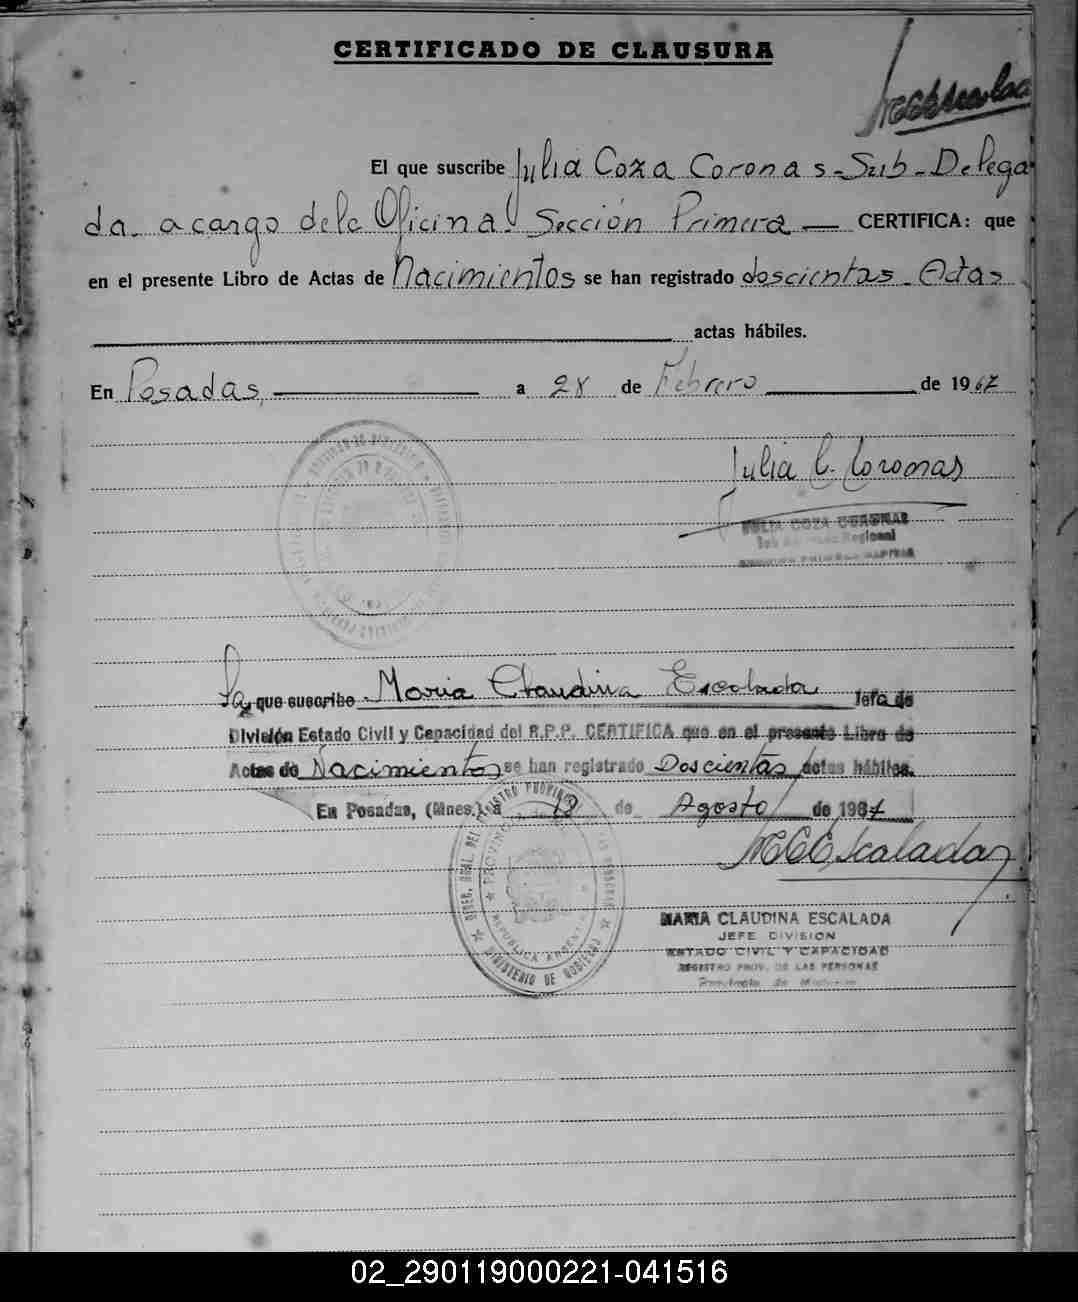 CERTIFICADO DE CLAUSURA
El que suscribe Julia Coza Coronas - Sub-Delega
da a cargo de la Oficina Sección Primera — CERTIFICA: que
en el presente Libro de Actas de Nacimientos se han registrado doscientas Actas
actas hábiles.
En Posadas, a 28 de Febrero de 1967
Julia C. Coronas
JULIA COZA CORONAS
Regional
La que suscribe Maria Claudina Escalada Jefa de
División Estado Civil y Capacidad del R.P.P. CERTIFICA que en el presente Libro de
Actas de Nacimientos se han registrado Doscientas actas hábiles.
En Posadas, (Mnes.) a 19 de Agosto de 1987
MCEscalada
MARIA CLAUDINA ESCALADA
JEFE DIVISION
ESTADO CIVIL Y CAPACIDAD
REGISTRO PROV. DE LAS PERSONAS
Provincia de Misiones
REPUBLICA ARGENTINA
MINISTERIO DE GOBIERNO
02_290119000221-041516